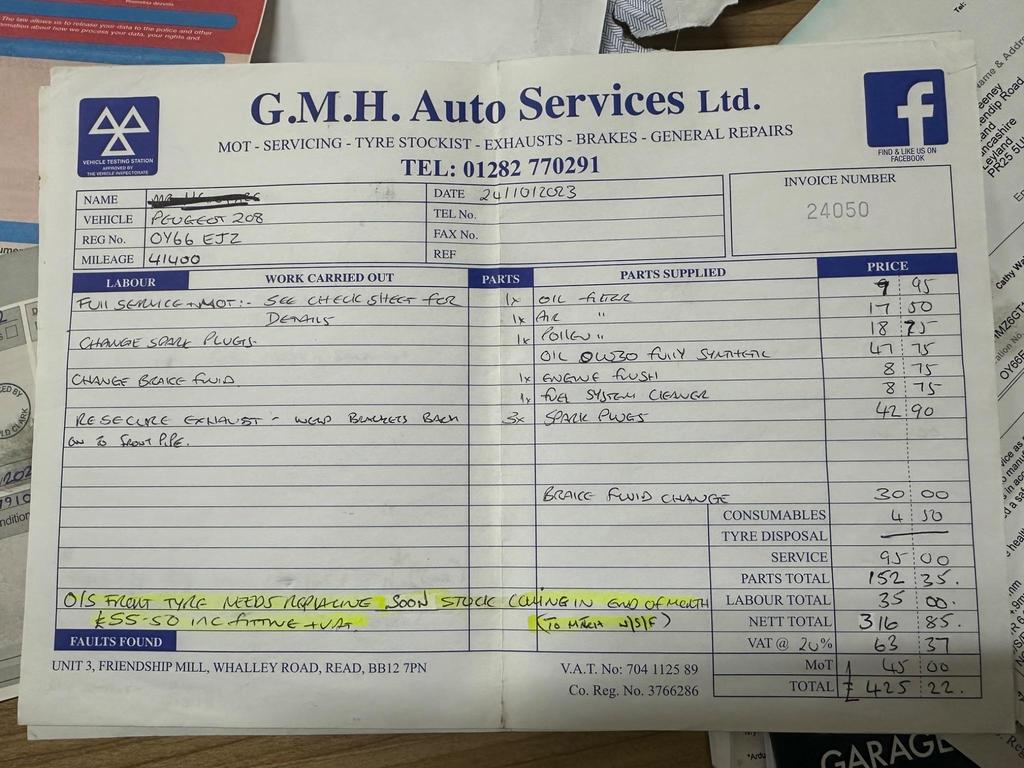 The law allows us to release your data to the police and other
G.M.H. Auto Services Ltd.
MOT - SERVICING - TYRE STOCKIST - EXHAUSTS - BRAKES - GENERAL REPAIRS
TEL: 01282 770291
VEHICLE TESTING STATION
APPROVED BY
THE VEHICLE INSPECTORATE
FIND & LIKE US ON
FACEBOOK
NAME
DATE 24/10/2023
INVOICE NUMBER
24050
VEHICLE PEUGEOT 208
TEL No.
REG No. OY66 EJZ
FAX No.
MILEAGE 41400
REF
LABOUR WORK CARRIED OUT PARTS PARTS SUPPLIED PRICE
FULL SERVICE + MOT:- SEE CHECK SHEET FOR 1x OIL FILTER 9 95
DETAILS 1x AIR " 17 50
CHANGE SPARK PLUGS. 1x POLLEN " 18 75
OIL 0W30 FULLY SYNTHETIC 47 75
CHANGE BRAKE FLUID 1x ENGINE FLUSH 8 75
1x FUEL SYSTEM CLEANER 8 75
RESECURE EXHAUST - WELD BRACKETS BACK 3x SPARK PLUGS 42 90
ON TO FRONT PIPE.
BRAKE FLUID CHANGE 30 00
CONSUMABLES 4 50
TYRE DISPOSAL
SERVICE 95 00
PARTS TOTAL 152 35.
O/S FRONT TYRE NEEDS REPLACING SOON STOCK COMING IN END OF MONTH LABOUR TOTAL 35 00.
£55-50 INC FITTING + VAT. (TO MATCH N/S/F) NETT TOTAL 316 85.
FAULTS FOUND
VAT @ 20% 63 37
UNIT 3, FRIENDSHIP MILL, WHALLEY ROAD, READ, BB12 7PN
V.A.T. No: 704 1125 89
MoT 45 00
Co. Reg. No. 3766286
TOTAL £ 425 22.
GARAGE
Name & Addre
PR25 5U